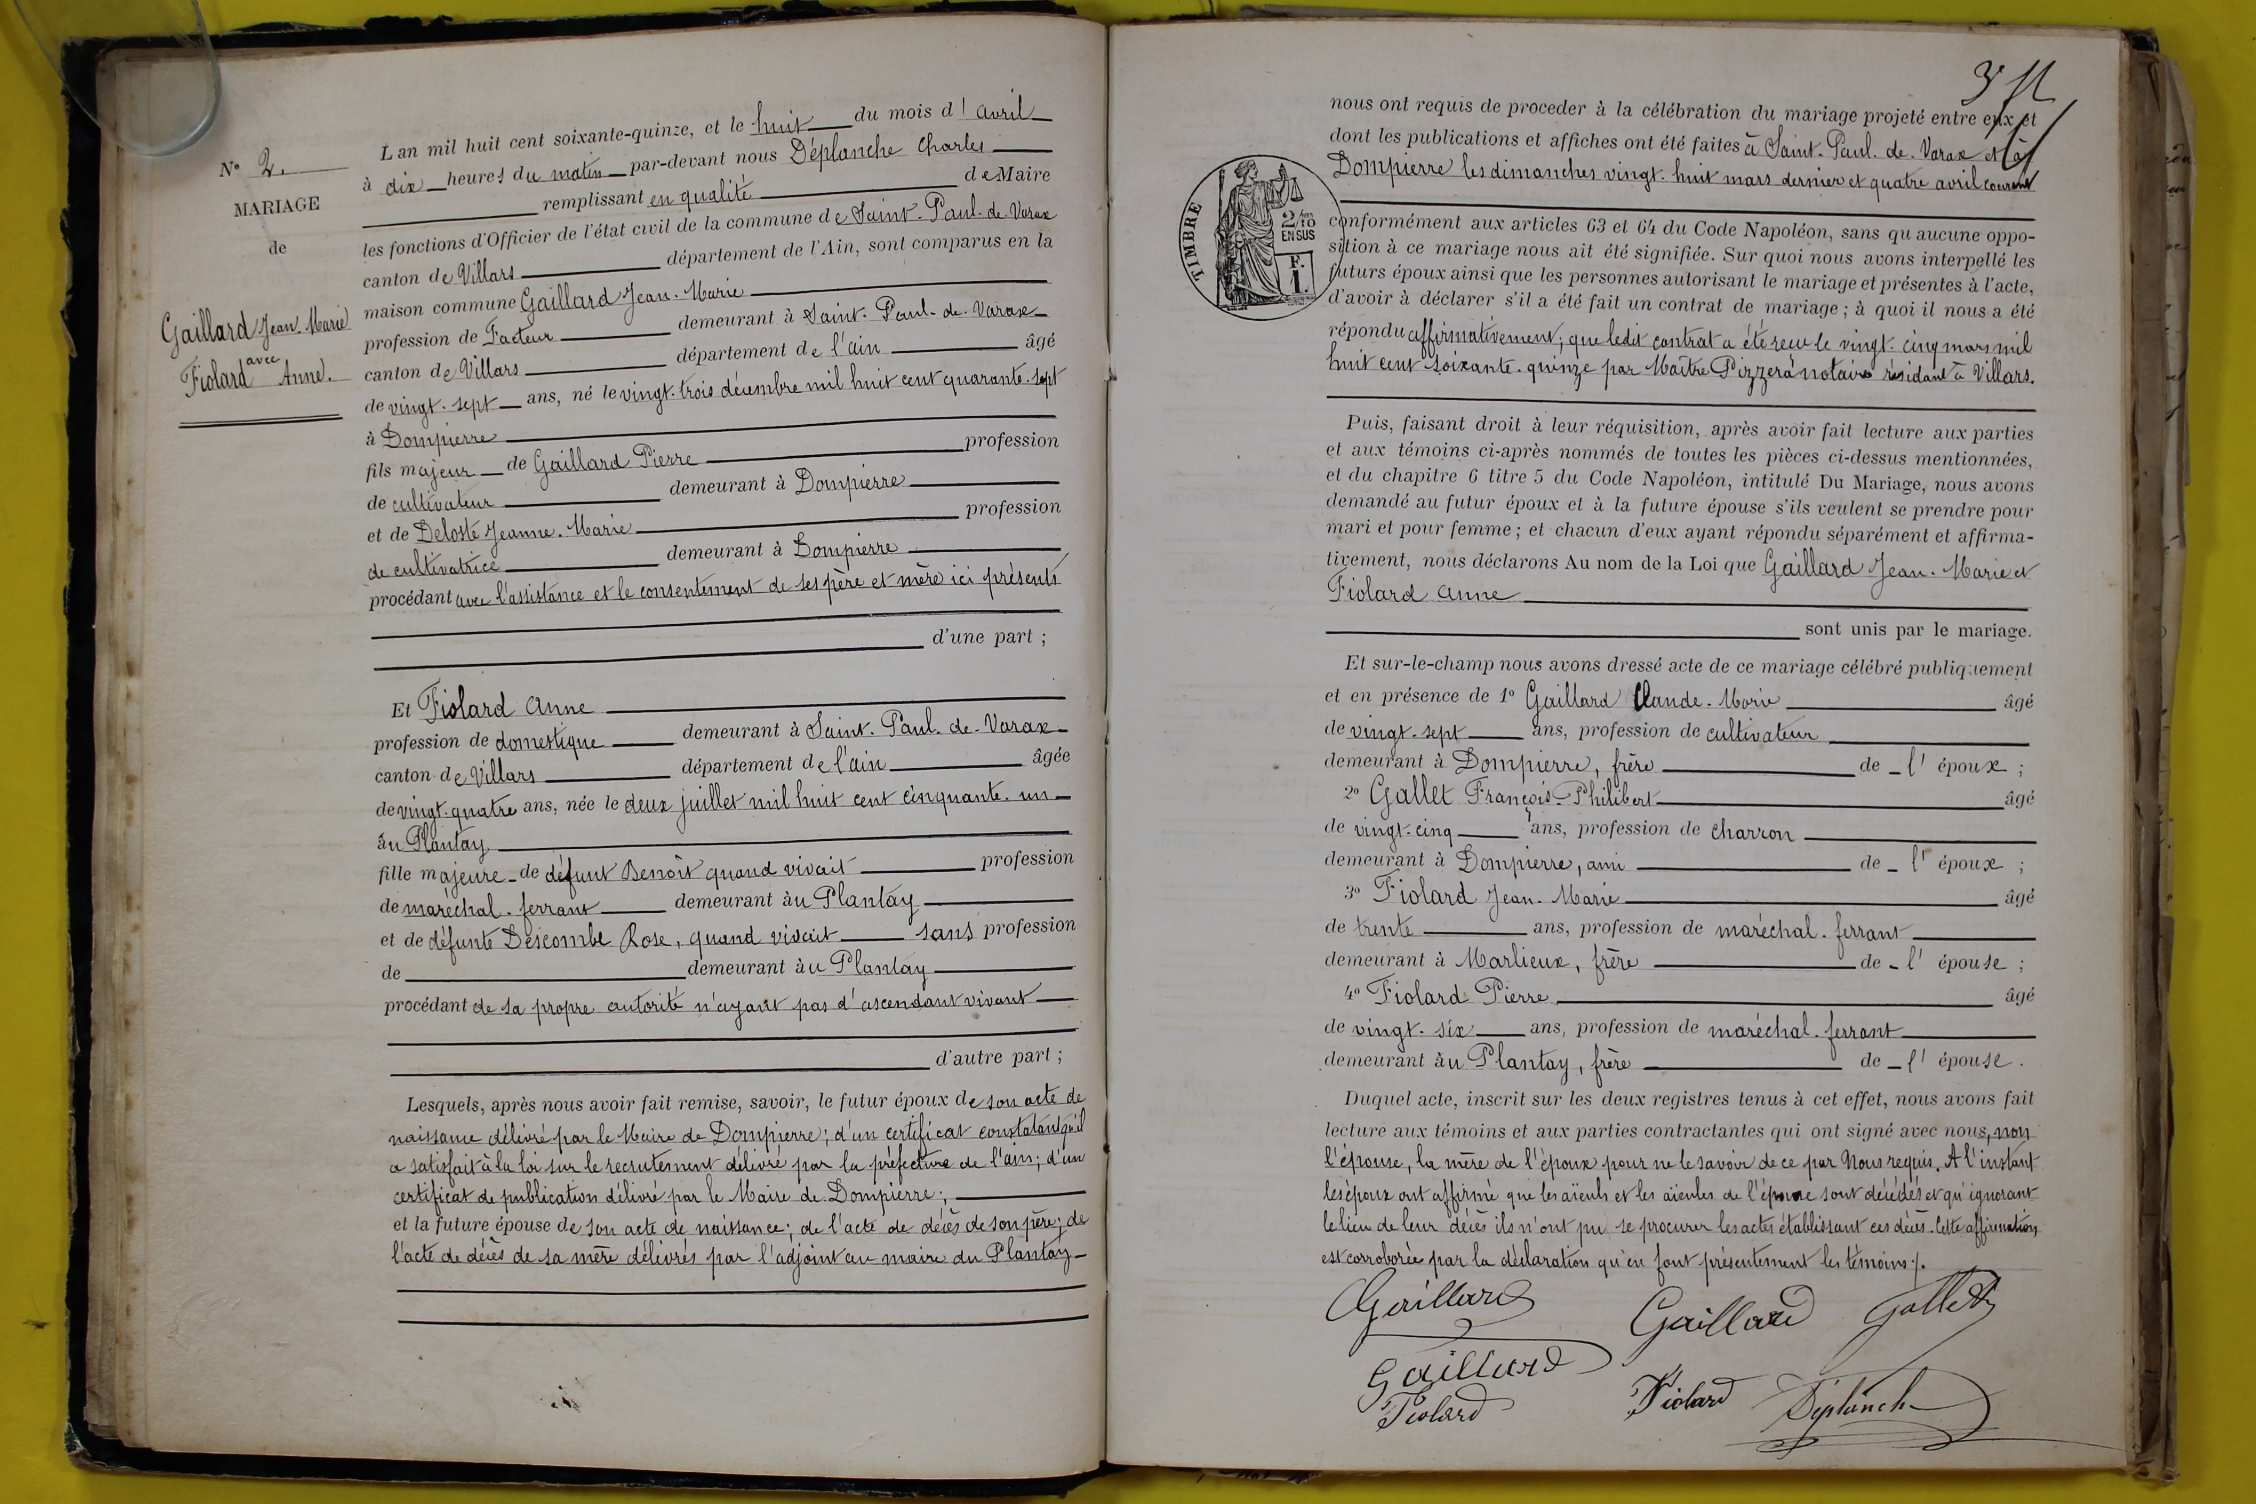 N° 2.
MARIAGE
de
Gaillard Jean-Marie
avec
Fiolard Anne.
L'an mil huit cent soixante-quinze, et le huit du mois d'avril
à dix heures du matin par-devant nous Déplanche Charles
remplissant en qualité de Maire
les fonctions d'Officier de l'état civil de la commune de Saint-Paul-de-Varax
canton de Villars département de l'Ain, sont comparus en la
maison commune Gaillard Jean-Marie
profession de Facteur demeurant à Saint-Paul-de-Varax
canton de Villars département de l'ain âgé
de vingt-sept ans, né le vingt-trois décembre mil huit cent quarante-sept
à Dompierre
fils majeur de Gaillard Pierre profession
de cultivateur demeurant à Dompierre
et de Deloste Jeanne-Marie profession
de cultivatrice demeurant à Dompierre
procédant avec l'assistance et le consentement de ses père et mère ici présents
d'une part ;
Et Fiolard Anne
profession de domestique demeurant à Saint-Paul-de-Varax
canton de Villars département de l'ain âgée
de vingt-quatre ans, née le deux juillet mil huit cent cinquante-un
àu Plantay
fille majeure de défunt Benoît quand vivait profession
de maréchal-ferrant demeurant àu Plantay
et de défunte Descombe Rose, quand vivait sans profession
de demeurant àu Plantay
procédant de sa propre autorité n'ayant pas d'ascendant vivant
d'autre part ;
Lesquels, après nous avoir fait remise, savoir, le futur époux de son acte de
naissance délivré par le Maire de Dompierre; d'un certificat constatant qu'il
a satisfait à la loi sur le recrutement délivré par la préfecture de l'ain; d'un
certificat de publication délivré par le Maire de Dompierre;
et la future épouse de son acte de naissance; de l'acte de décès de son père; de
l'acte de décès de sa mère délivrés par l'adjoint au maire du Plantay
nous ont requis de proceder à la célébration du mariage projeté entre eux et
dont les publications et affiches ont été faites à Saint-Paul-de-Varax et à
Dompierre les dimanches vingt-huit mars dernier et quatre avril courant
TIMBRE
2/10
EN SUS
F.
1.
conformément aux articles 63 et 64 du Code Napoléon, sans qu'aucune oppo-
sition à ce mariage nous ait été signifiée. Sur quoi nous avons interpellé les
futurs époux ainsi que les personnes autorisant le mariage et présentes à l'acte,
d'avoir à déclarer s'il a été fait un contrat de mariage ; à quoi il nous a été
répondu affirmativement; que ledit contrat a été recu le vingt-cinq mars mil
huit cent soixante-quinze par Maître Pizzera notaire residant à Villars.
Puis, faisant droit à leur réquisition, après avoir fait lecture aux parties
et aux témoins ci-après nommés de toutes les pièces ci-dessus mentionnées,
et du chapitre 6 titre 5 du Code Napoléon, intitulé Du Mariage, nous avons
demandé au futur époux et à la future épouse s'ils veulent se prendre pour
mari et pour femme ; et chacun d'eux ayant répondu séparément et affirma-
tivement, nous déclarons Au nom de la Loi que Gaillard Jean-Marie et
Fiolard Anne
sont unis par le mariage.
Et sur-le-champ nous avons dressé acte de ce mariage célébré publiquement
et en présence de 1° Gaillard Claude-Marie âgé
de vingt-sept ans, profession de cultivateur
demeurant à Dompierre, frère de l'époux ;
2° Gallet François-Philibert âgé
de vingt-cinq ans, profession de charron
demeurant à Dompierre, ami de l'époux ;
3° Fiolard Jean-Marie âgé
de trente ans, profession de maréchal-ferrant
demeurant à Marlieux, frère de l'épouse ;
4° Fiolard Pierre âgé
de vingt-six ans, profession de maréchal-ferrant
demeurant àu Plantay, frère de l'épouse.
Duquel acte, inscrit sur les deux registres tenus à cet effet, nous avons fait
lecture aux témoins et aux parties contractantes qui ont signé avec nous, non
l'épouse, la mère de l'époux pour ne le savoir de ce par Nous requis. A l'instant
les époux ont affirmé que les aïeuls et les aïeules de l'épouse sont décédés et qu'ignorant
le lieu de leur décès ils n'ont pu se procurer les actes établissant ces décès. Cette affirmation
est corroborée par la déclaration qu'en font présentement les témoins.
Gaillard Gaillard Gallet
Gaillard
Fiolard Fiolard Déplanche